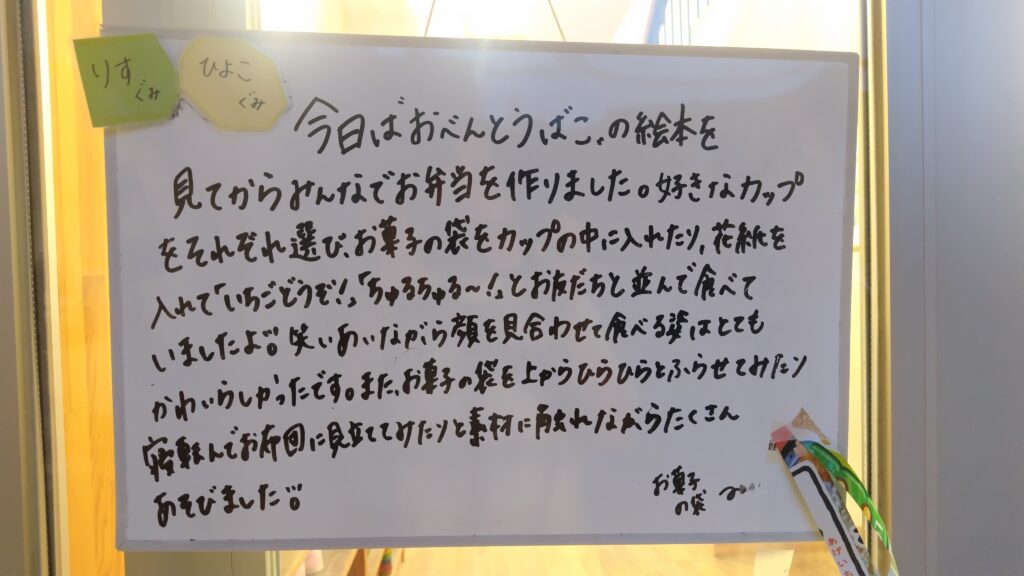 りす
ぐみ
ひよこ
ぐみ
今日は「おべんとうばこ」の絵本を
見てからみんなでお弁当を作りました。好きなカップ
をそれぞれ選び、お菓子の袋をカップの中に入れたり、花紙を
入れて「いちごどうぞ!」「ちゅるちゅる～!」とお友だちと並んで食べて
いましたよ。笑いあいながら顔を見合わせて食べる姿はとても
かわいらしかったです。また、お菓子の袋を上からひらひらとふらせてみたり
寝転んでお布団に見立ててみたりと素材に触れながらたくさん
あそびました。
お菓子
の袋